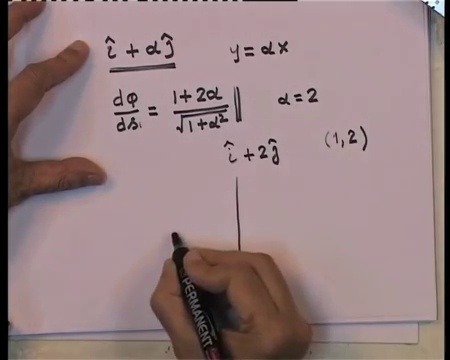 î + αĵ y = αx
dφ/ds = (1+2α)/√(1+α²) α = 2
î + 2ĵ (1,2)
PERMANENT